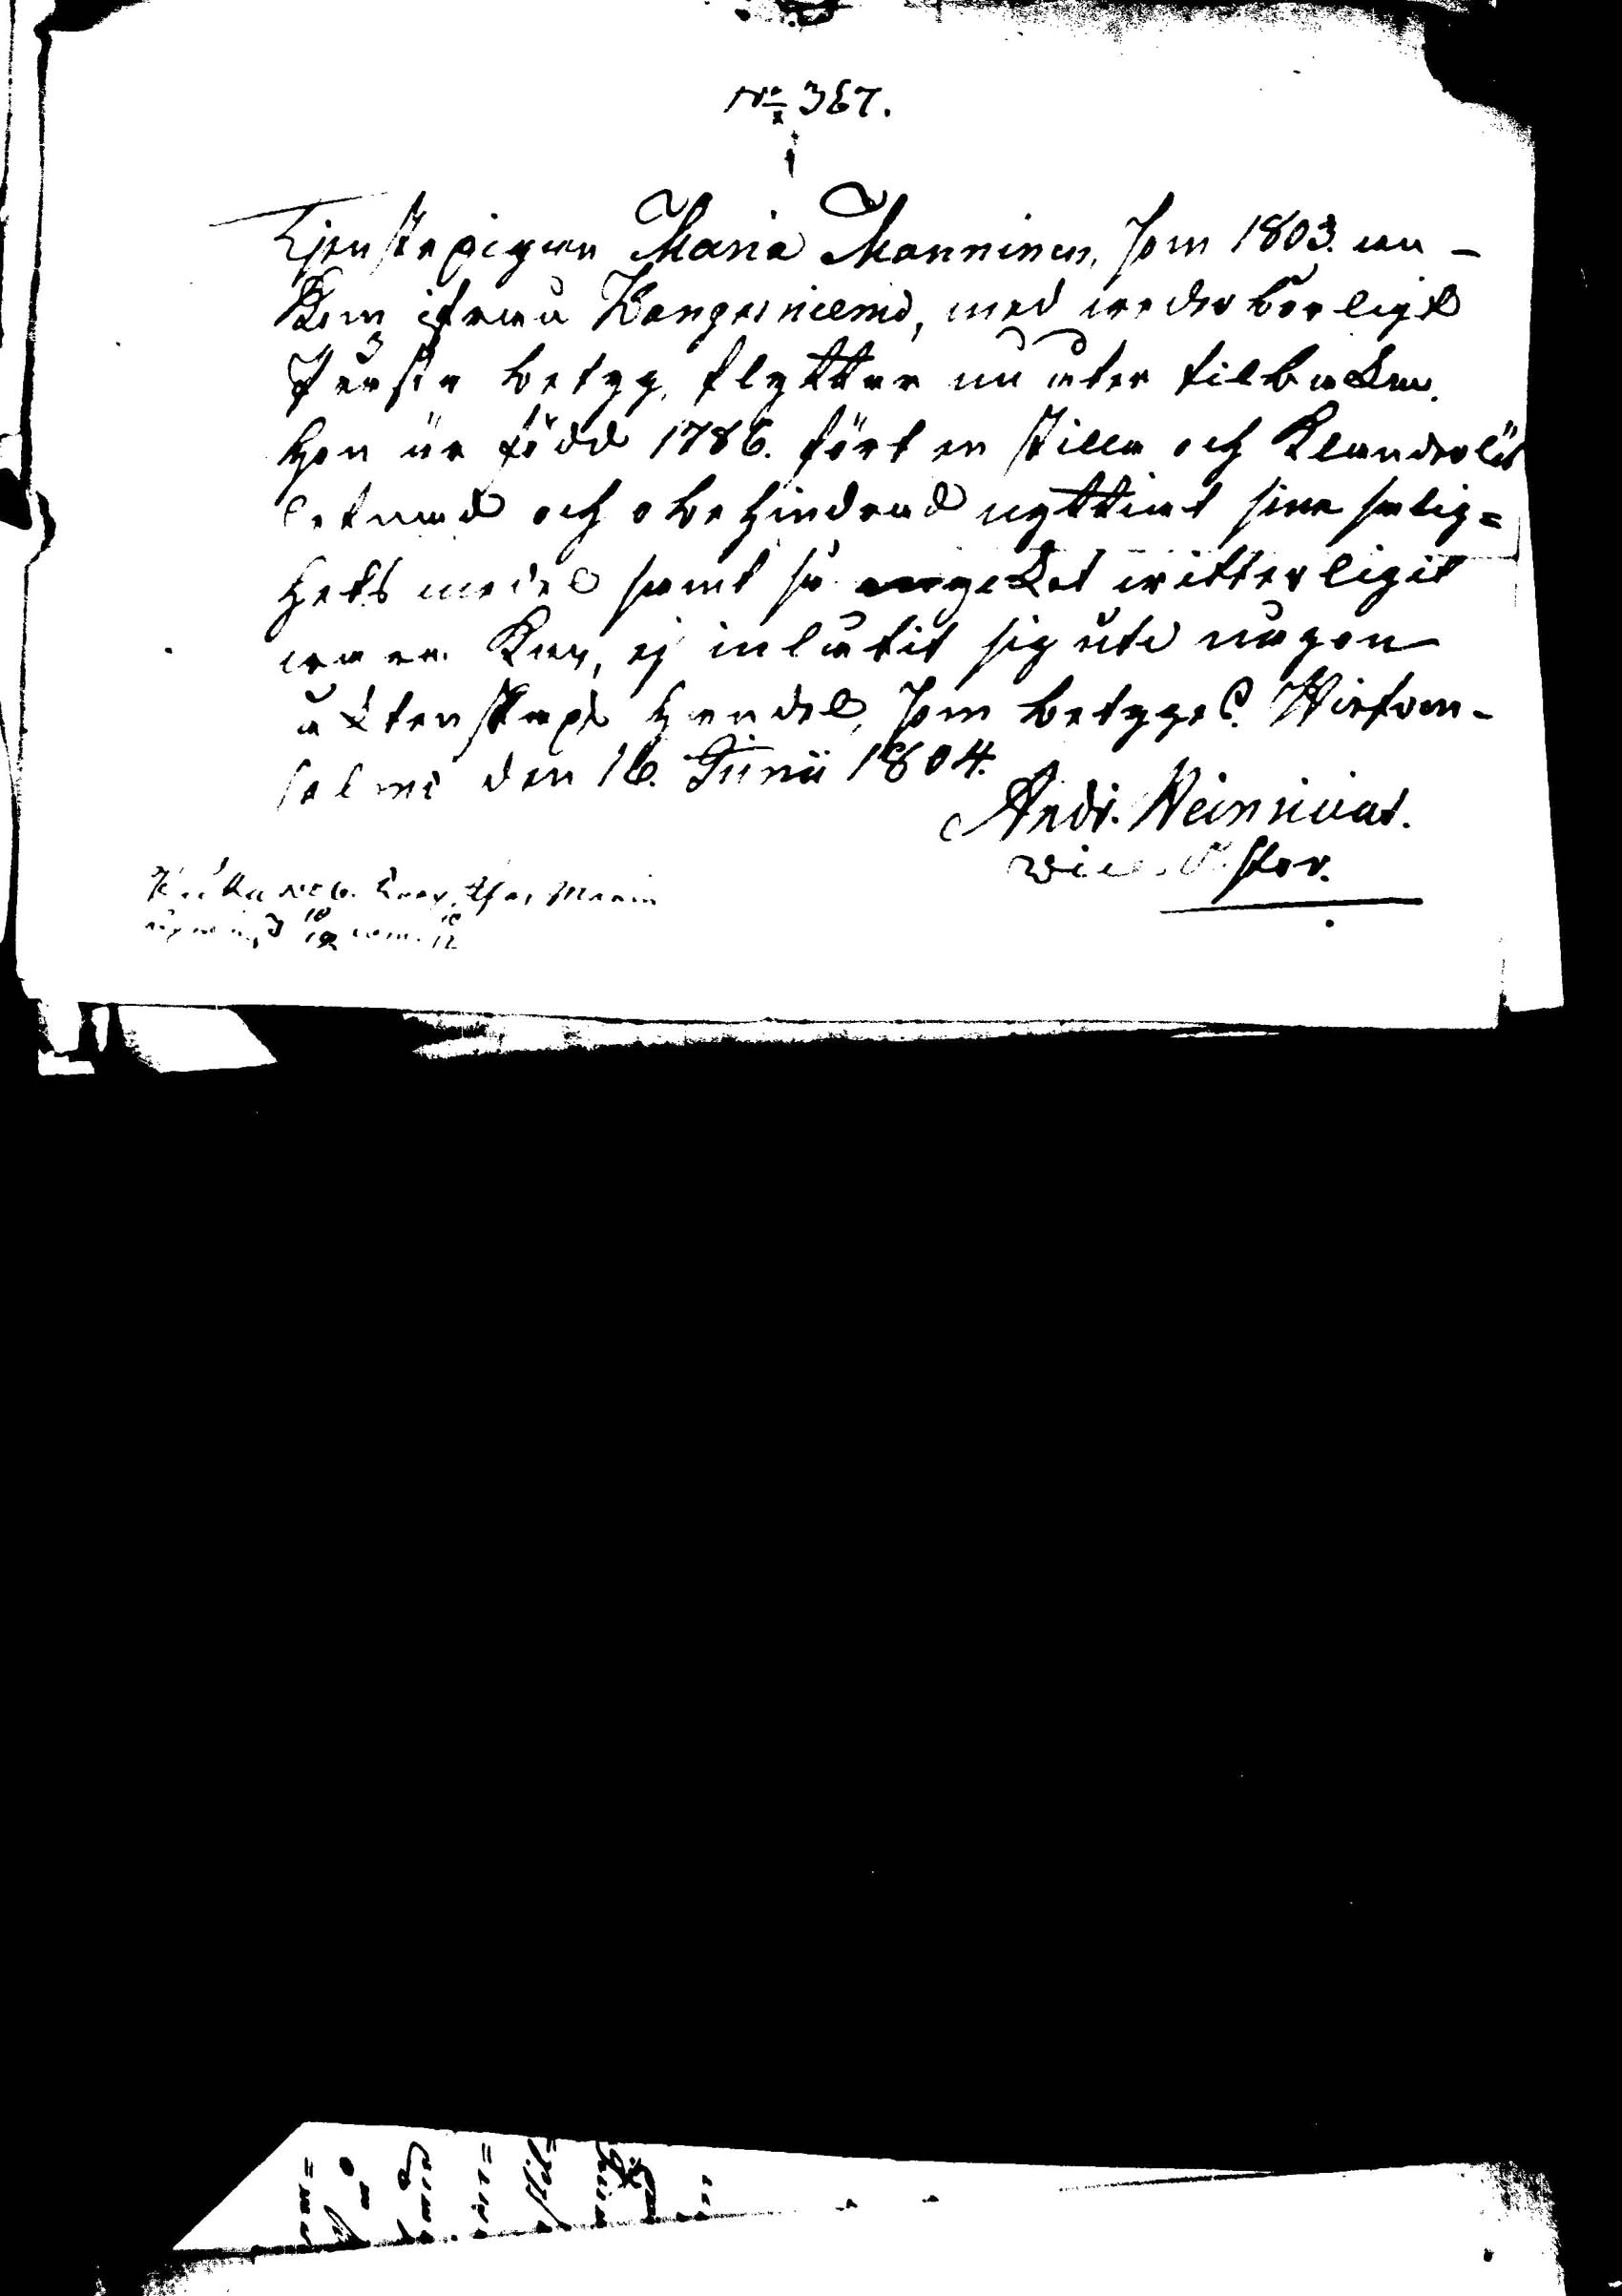 No 367.
Tjenstepigan Maria Manninen, som 1803. an-
kom ifrån Kangasniemi, med wederbörligt
Prästa betyg, flyttar nu åter tilbaka.
Hon är född 1786. fört en stilla och klanderlös
lefnad och obehindrad nyttiat sina salig=
hets medel samt så mycket witterligit
wara kan, ej inlåtit sig uti någon
äktenskaps handel, som betygas. Wirtan-
salmi den 16. Junii 1804.
Andr. Heinricius.
Vice Pastor.
Maria